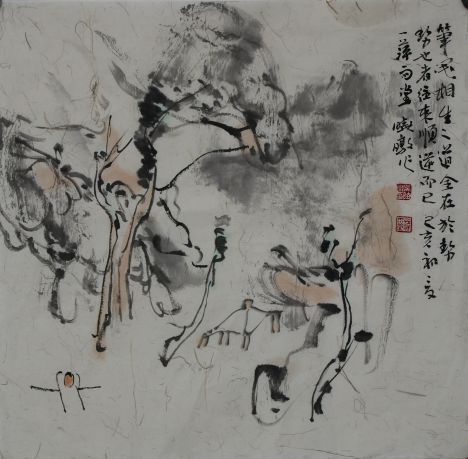 筆墨相生之道全在於勢
勢也者往來順逆而已 己亥初夏
一 雨堂 作